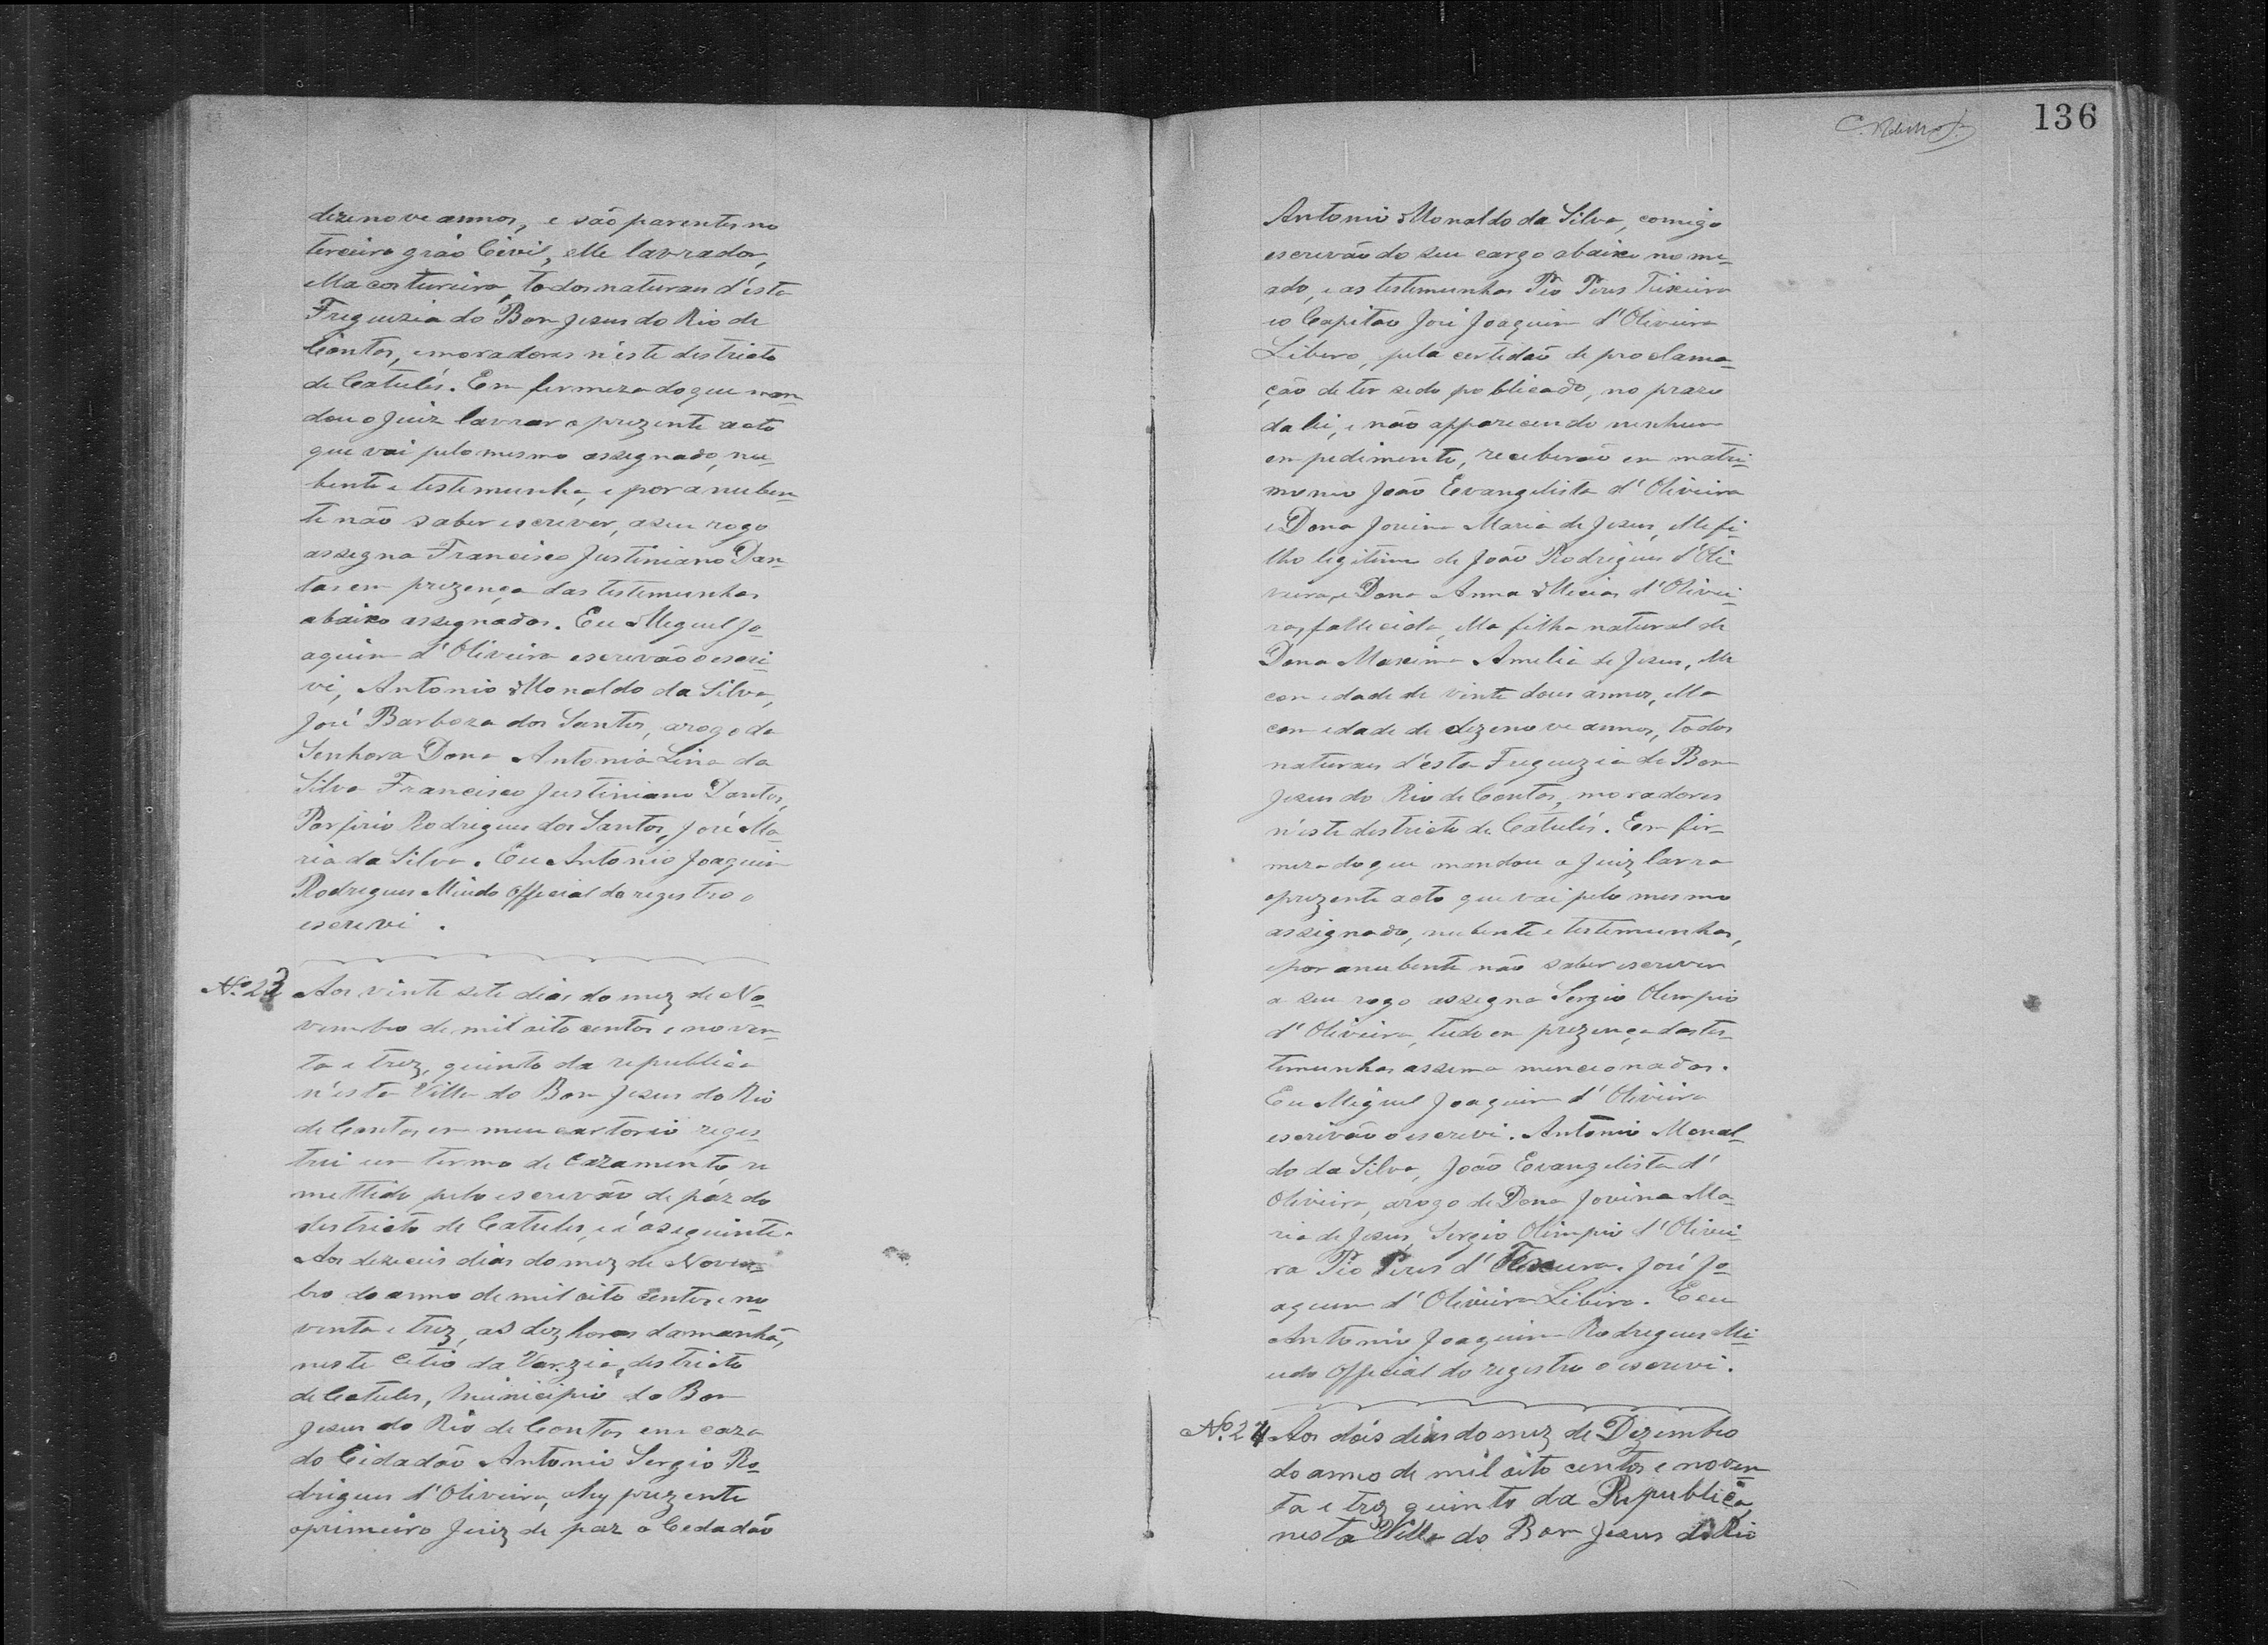 dezenove annos, e são parentes no
terceiro gráo Civil, elle lavrador,
ella costureira, todos naturaes d'ésta
Freguezia do Bom Jesus do Rio de
Contas, e moradores n'éste destricto
de Catulés. Em firmeza do que man-
dou o Juiz lavrar o prezente acto
que vai pelo mesmo assegnado, nu-
bente e testemunha, e por a nuben-
te não saber escrever, a seu rogo
assegna Francisco Justiniano Dan-
tas em prezença das testemunhas
abaixo assegnados. Eu Miguel Jo-
aquim d'Oliveira escrevão o escri-
vi, Antonio Monaldo da Silva,
José Barboza dos Santos, arogo da
Senhora Dona Antonia Lina da
Silva Francisco Justiniano Dantas,
Porfirio Rodrigues dos Santos, José Ma-
ria da Silva. Eu Antonio Joaquim
Rodrigues Miudo Official do registro o
escrevi.
Nº 23 Aos vinte sete dias do mez de No-
vembro de mil oito centos e noven-
ta e trez, quinto da republica
n'ésta Villa do Bom Jesus do Rio
de Contas em meu cartorio regis-
trei um termo de cazamento re
mettido pelo escrevão de páz do
destricto de Catules, e é o seguinte.
Aos dezeceis dias do mez de Novem-
bro do anno de mil oito centos e no-
venta e trez, as dez horas da manhã,
neste Cetio da Varzia, destricto
de Catules, Municipio do Bom
Jesus do Rio de Contas em caza
do Cidadão Antonio Sergio Ro-
drigues d'Oliveira, ahy prezente
o primeiro Juiz de paz o Cedadão
136
Antonio Monaldo da Silva, comigo
escrevão do seu cargo abaixo nome-
ado, e as testemunhas Pio Peres Teixeira
e o Capitão José Joaquim d'Oliveira
Libero, pela certidão de proclama-
ção de ter sedo publicado, no prazo
da lei, e não apparecendo nenhum
empedimento, receberão em matri-
monio João Evangelista d'Oliveira
e Dona Jovina Maria de Jesus, elle fi-
lho legitimo de João Rodrigues d'Oli
veira, e Dona Anna Mecias d'Olivei-
ra, fallecida, ella filha natural de
Dona Maxima Amelia de Jesus, elle
com edade de vinte dous annos, ella
com edade de dezenove annos, todos
naturaes d'ésta Freguezia do Bom
Jesus do Rio de Contas, moradores
n'éste destricto de Catulés. Em fir-
meza do que mandou o Juiz lavra
o prezente acto que vai pelo mesmo
assignado, nubente e testemunhas,
e por anubente não saber escrever
a seu rogo assegna Sergio Olimpio
d'Oliveira, tudo em prezença das tes-
temunhas assema mencionados.
Eu Miguel Joaquim d'Oliveira
escrivão o escrevi. Antonio Monal-
do da Silva, João Evangelista d'
Oliveira, arogo de Dona Jovina Ma-
ria de Jesus, Sergio Olimpio d'Olivei-
ra Pio Peres d' Texeura. José Jo-
aquim d'Oliveira Libero. E eu
Antonio Joaquim Rodrigues Mi-
udo Official do registro o escrevi.
Nº 24 Aos dois dias do mez de Dezembro
do anno de mil oito centos e noven-
ta e trez quinto da Republica,
nesta Villa do Bom Jesus do Rio